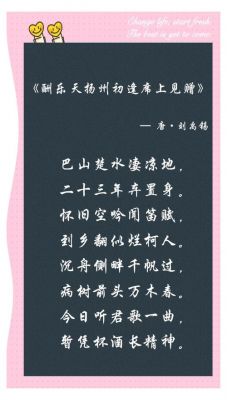 Change life, start fresh.
The best is yet to come
《酬乐天扬州初逢席上见赠》
— 唐·刘禹锡
巴山楚水凄凉地，
二十三年弃置身。
怀旧空吟闻笛赋，
到乡翻似烂柯人。
沉舟侧畔千帆过，
病树前头万木春。
今日听君歌一曲，
暂凭杯酒长精神。